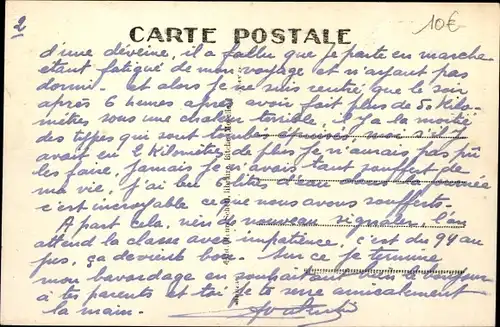 2
10€
CARTE POSTALE
d'une déveine, il a fallu que je parte en marche
etant fatigué de mon voyage et n'ayant pas
dormi. et alors je ne suis rentré que le soir
après 6 heures après avoir fait plus de 50 kilo-
mètres sous une chaleur terrible, il y a la moitié
des types qui sont tombés épuisés moi s'il y
avait eu 2 kilomètres de plus je n'aurais pas pu
les faire, jamais je n'avais tant souffert de
ma vie, j'ai bu 6 litres d'eau dans la journée
c'est incroyable ce que nous avons souffert.
A part cela, rien de nouveau à signaler, l'on
attend la classe avec impatience, c'est du 94 au
pas, ça devient bon. Sur ce je termine
mon bavardage en souhaitant bien le bonjour
à tes parents et toi je te serre amicalement
la main.